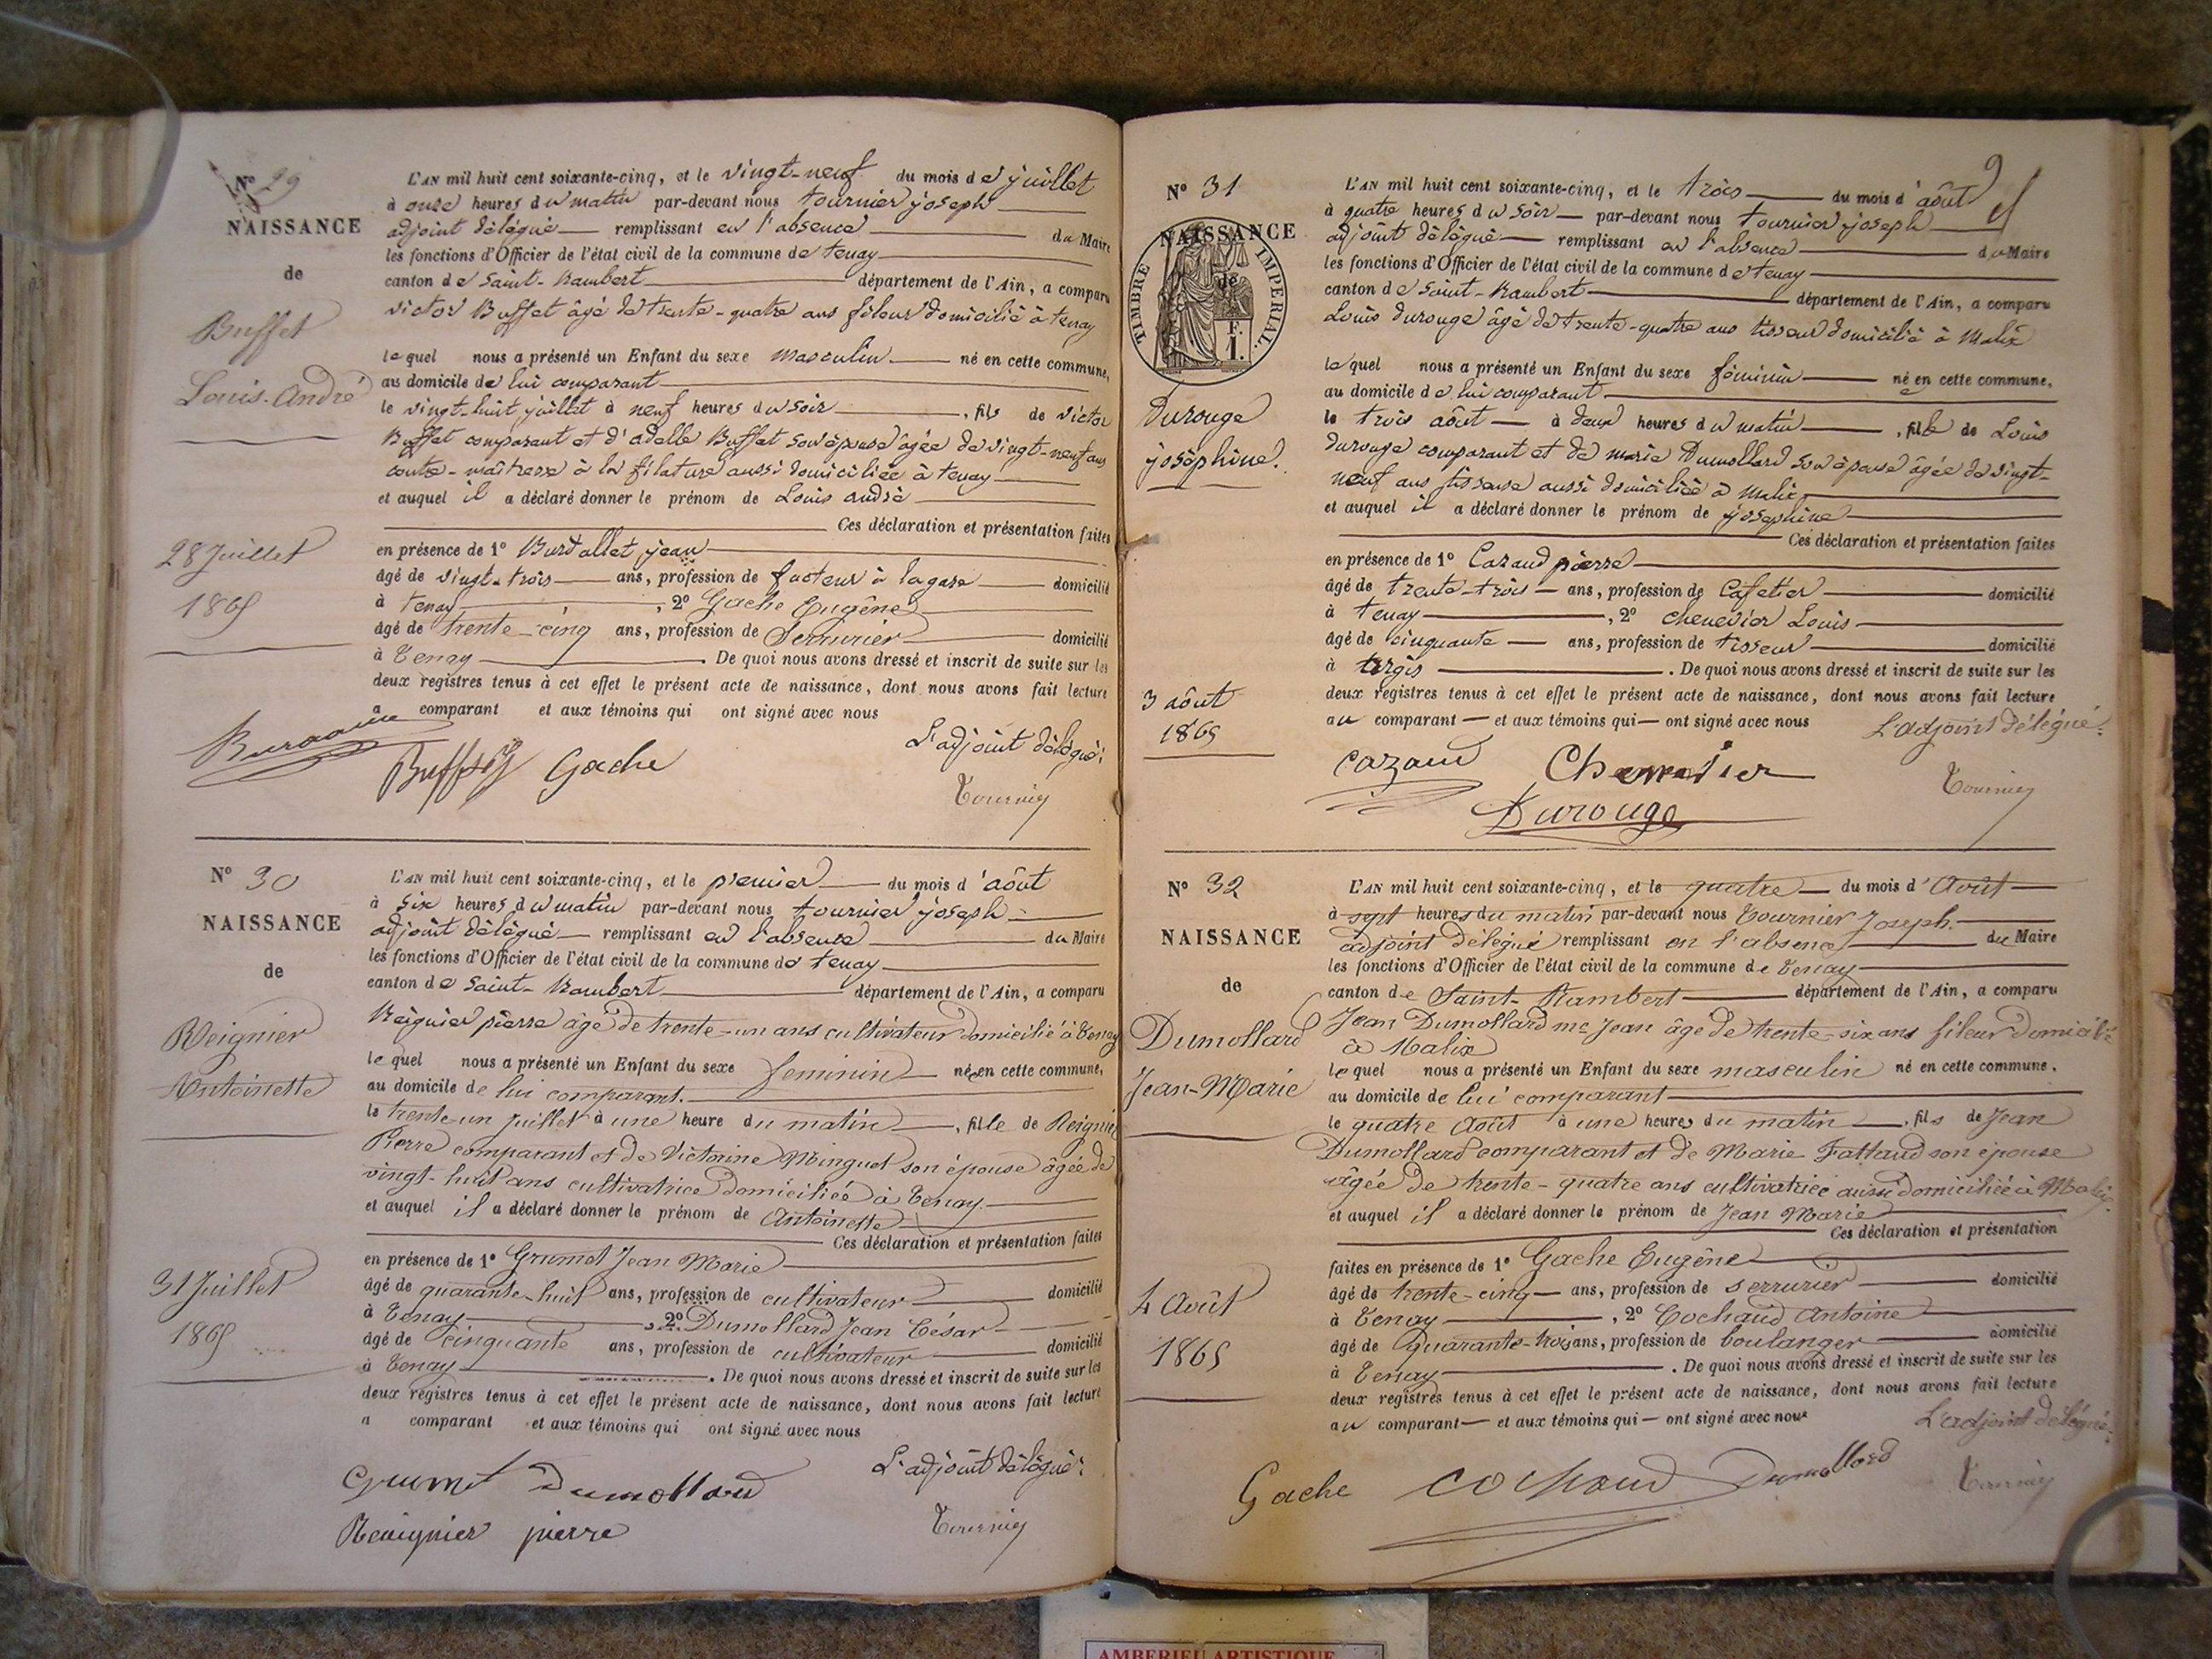 N° 29
NAISSANCE
de
Buffet
Louis-André
28 Juillet
1865
L'AN mil huit cent soixante-cinq, et le vingt-neuf du mois de juillet
à onze heures du matin par-devant nous tournier joseph
adjoint délégué remplissant en l'absence du Maire
les fonctions d'Officier de l'état civil de la commune de tenay
canton de Saint-Rambert département de l'Ain, a comparu
victor Buffet âgé de trente-quatre ans fileur domicilié à tenay
lequel nous a présenté un Enfant du sexe masculin né en cette commune,
au domicile de lui comparant
le vingt-huit juillet à neuf heures du soir, fils de victor
Buffet comparant et d'adelle Buffet son épouse âgée de vingt-neuf ans
contre-maîtresse à la filature aussi domiciliée à tenay
et auquel il a déclaré donner le prénom de Louis andré
Ces déclaration et présentation faites
en présence de 1° Burdallet jean
âgé de vingt-trois ans, profession de facteur à la gare domicilié
à tenay, 2° Gache Eugène
âgé de trente-cinq ans, profession de Serrurier domicilié
à Tenay. De quoi nous avons dressé et inscrit de suite sur les
deux registres tenus à cet effet le présent acte de naissance, dont nous avons fait lecture
a comparant et aux témoins qui ont signé avec nous
L'adjoint délégué:
Gache
Tournier
N° 30
NAISSANCE
de
Reignier
Antoinette
31 Juillet
1865
L'AN mil huit cent soixante-cinq, et le premier du mois d'août
à six heures du matin par-devant nous tournier joseph
adjoint délégué remplissant en l'absence du Maire
les fonctions d'Officier de l'état civil de la commune de tenay
canton de Saint-Rambert département de l'Ain, a comparu
Reignier pierre âgé de trente-un ans cultivateur domicilié à Tenay
lequel nous a présenté un Enfant du sexe feminin née en cette commune,
au domicile de lui comparant.
le trente un Juillet à une heure du matin, fille de Reignier
Pierre comparant et de Victorine Minguet son épouse âgée de
vingt-huit ans cultivatrice domiciliée à Tenay.
et auquel il a déclaré donner le prénom de Antoinette
Ces déclaration et présentation faites
en présence de 1° Grumet Jean Marie
âgé de quarante-huit ans, profession de cultivateur domicilié
à Tenay, 2° Dumollard Jean César
âgé de cinquante ans, profession de cultivateur domicilié
à Tenay. De quoi nous avons dressé et inscrit de suite sur les
deux registres tenus à cet effet le présent acte de naissance, dont nous avons fait lecture
a comparant et aux témoins qui ont signé avec nous
L'adjoint délégué:
Grumet Dumollard
Reuignier pierre
Tournier
N° 31
NAISSANCE
de
TIMBRE IMPERIAL.
F.
1.
Durouge
joséphine.
3 août
1865
L'AN mil huit cent soixante-cinq, et le trois du mois d'août
à quatre heures du soir par-devant nous tournier joseph
adjoint délégué remplissant en l'absence du Maire
les fonctions d'Officier de l'état civil de la commune de tenay
canton de Saint-Rambert département de l'Ain, a comparu
Louis durouge âgé de trente-quatre ans tisseur domicilié à Malix
lequel nous a présenté un Enfant du sexe féminin née en cette commune,
au domicile de lui comparant
le trois août à deux heures du matin, fille de Louis
durouge comparant et de marie Dumollard son épouse âgée de vingt-
neuf ans tisseuse aussi domiciliée à Malix
et auquel il a déclaré donner le prénom de joséphine
Ces déclaration et présentation faites
en présence de 1° Cazaud pierre
âgé de trente-trois ans, profession de Cafetier domicilié
à tenay, 2° chenevier Louis
âgé de cinquante ans, profession de tisseur domicilié
à argis. De quoi nous avons dressé et inscrit de suite sur les
deux registres tenus à cet effet le présent acte de naissance, dont nous avons fait lecture
au comparant et aux témoins qui ont signé avec nous
L'adjoint délégué:
Cazaud
Durouge
Tournier
N° 32
NAISSANCE
de
Dumollard
Jean-Marie
4 Août
1865
L'AN mil huit cent soixante-cinq, et le quatre du mois d'Août
à sept heures du matin par-devant nous Tournier Joseph.
adjoint délégué remplissant en l'absence du Maire
les fonctions d'Officier de l'état civil de la commune de Tenay
canton de Saint-Rambert département de l'Ain, a comparu
Jean Dumollard me Jean âgé de trente-six ans fileur domicilié
à Malix
lequel nous a présenté un Enfant du sexe masculin né en cette commune.
au domicile de lui comparant
le quatre Août à une heures du matin, fils de Jean
Dumollard comparant et de Marie Fattaud son épouse
âgée de trente-quatre ans cultivatrice aussi domiciliée à Malix.
et auquel il a déclaré donner le prénom de Jean Marie
Ces déclaration et présentation
faites en présence de 1° Gache Eugène
âgé de trente-cinq ans, profession de serrurier domicilié
à Tenay, 2° Cochaud Antoine
âgé de quarante-trois ans, profession de boulanger domicilié
à Tenay. De quoi nous avons dressé et inscrit de suite sur les
deux registres tenus à cet effet le présent acte de naissance, dont nous avons fait lecture
au comparant et aux témoins qui ont signé avec nous
L'adjoint délégué:
Gache Cochaud Dumollard
Tournier
AMBERIEU ARTISTIQUE